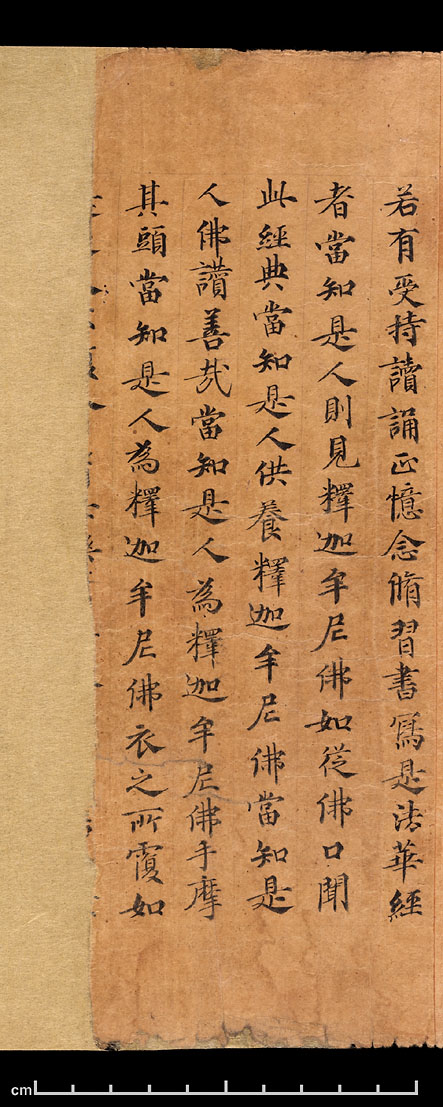 若有受持讀誦正憶念脩習書寫是法華經
者當知是人則見釋迦牟尼佛如從佛口聞
此經典當知是人供養釋迦牟尼佛當知是
人佛讚善哉當知是人為釋迦牟尼佛手摩
其頭當知是人為釋迦牟尼佛衣之所覆如
cm